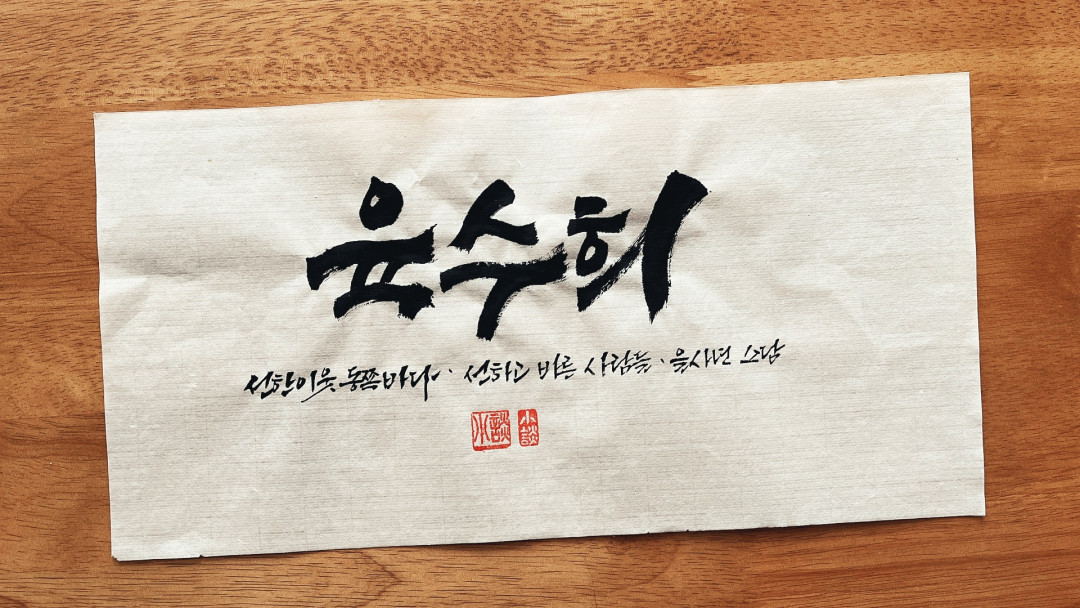 윤수희
선한이웃 동쪽바다 · 선하고 바른 사람들 · 을사년 소담
小談 小談